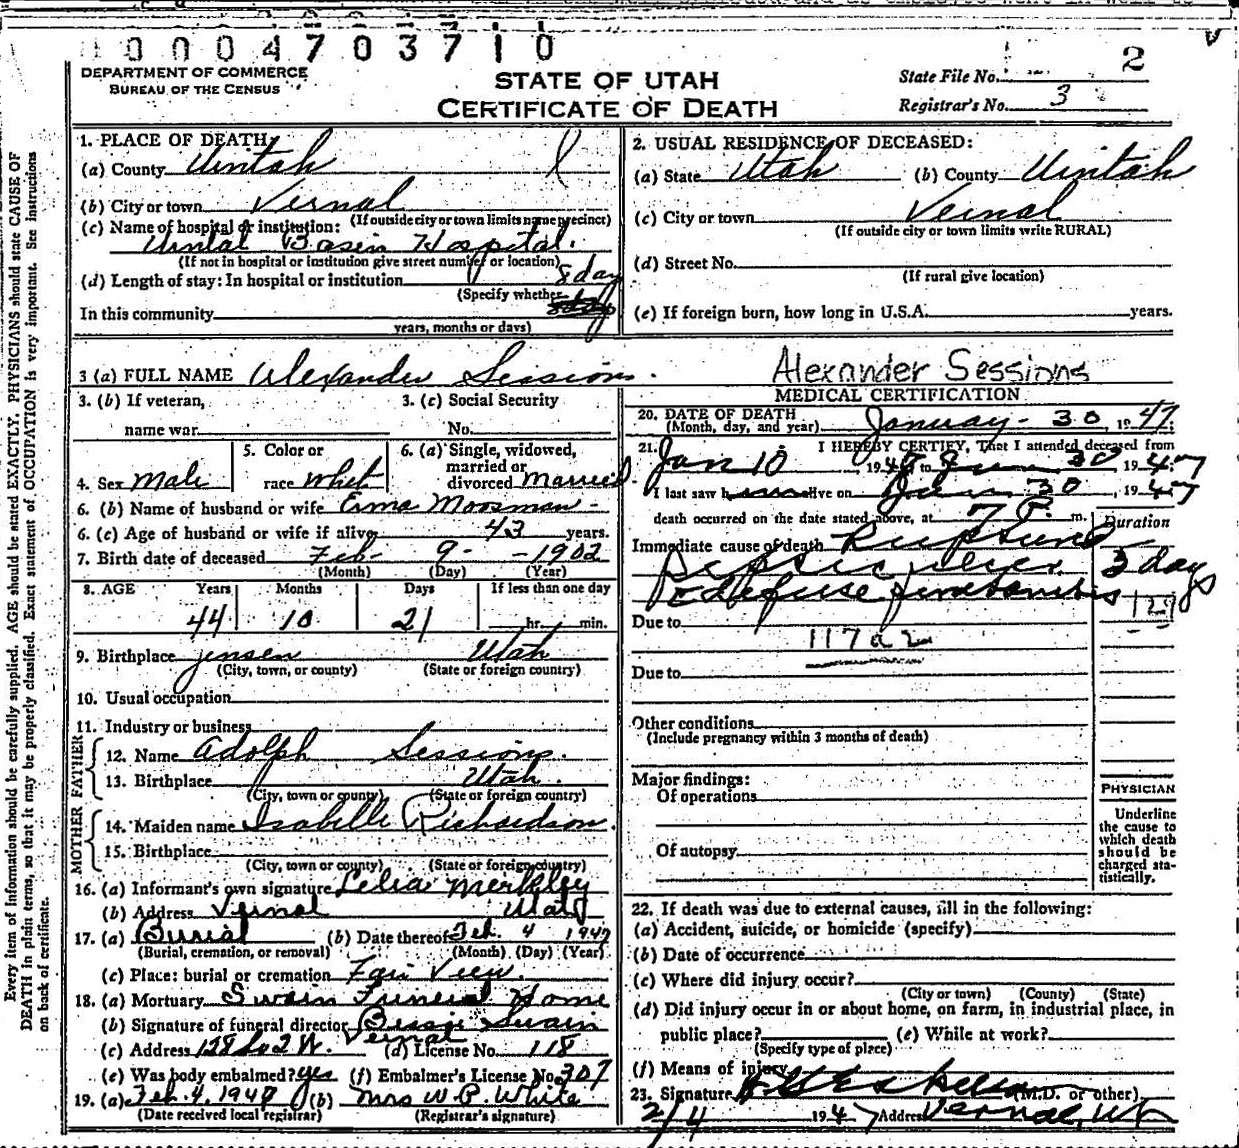 0004703710
DEPARTMENT OF COMMERCE
BUREAU OF THE CENSUS
STATE OF UTAH
CERTIFICATE OF DEATH
State File No. 2
Registrar's No. 3
Every item of information should be carefully supplied. AGE should be stated EXACTLY. PHYSICIANS should state CAUSE OF
DEATH in plain terms, so that it may be properly classified. Exact statement of OCCUPATION is very important. See instructions
on back of certificate.
1. PLACE OF DEATH
(a) County Uintah
(b) City or town Vernal
(If outside city or town limits name precinct)
(c) Name of hospital or institution:
Uintah Basin Hospital.
(If not in hospital or institution give street number or location)
(d) Length of stay: In hospital or institution 8 day
(Specify whether
In this community
years, months or days)
2. USUAL RESIDENCE OF DECEASED:
(a) State Utah (b) County Uintah
(c) City or town Vernal
(If outside city or town limits write RURAL)
(d) Street No.
(If rural give location)
(e) If foreign born, how long in U.S.A. years.
3 (a) FULL NAME Alexander Sessions.
Alexander Sessions
3. (b) If veteran,
name war
3. (c) Social Security
No.
4. Sex Male
5. Color or
race whit
6. (a) Single, widowed,
married or
divorced Married.
6. (b) Name of husband or wife Erma Moosman
6. (c) Age of husband or wife if alive 43 years.
7. Birth date of deceased Feb 9 - 1902
(Month) (Day) (Year)
8. AGE Years Months Days If less than one day
44 10 21 hr. min.
9. Birthplace Jensen Utah
(City, town, or county) (State or foreign country)
10. Usual occupation
11. Industry or business
FATHER
12. Name Adolph Sessions.
13. Birthplace Utah.
(City, town or county) (State or foreign country)
MOTHER
14. Maiden name Isabelle Richardson.
15. Birthplace
(City, town or county) (State or foreign country)
16. (a) Informant's own signature Lelia Merkley
(b) Address Vernal Utah
17. (a) Burial (b) Date thereof Feb. 4 1947
(Burial, cremation, or removal) (Month) (Day) (Year)
(c) Place: burial or cremation Fair View.
18. (a) Mortuary Swain Funeral Home
(b) Signature of funeral director Bessie Swain
(c) Address 128 So 2 W. Vernal (d) License No. 118
(e) Was body embalmed? yes (f) Embalmer's License No. 307
19. (a) Feb. 4, 1947 (b) Mrs W. P. White
(Date received local registrar) (Registrar's signature)
MEDICAL CERTIFICATION
20. DATE OF DEATH
(Month, day, and year) January - 30, 1947.
21. I HEREBY CERTIFY, That I attended deceased from
Jan 10 1947 to Jan 30 1947
I last saw him alive on Jan 30, 1947
death occurred on the date stated above, at 7 P. m.
Duration
Immediate cause of death Ruptured
Peptic ulcer 3 days
129
Due to
117a2
Due to
Other conditions
(Include pregnancy within 3 months of death)
Major findings:
Of operations
Of autopsy
PHYSICIAN
Underline
the cause to
which death
should be
charged sta-
tistically.
22. If death was due to external causes, fill in the following:
(a) Accident, suicide, or homicide (specify)
(b) Date of occurrence
(c) Where did injury occur?
(City or town) (County) (State)
(d) Did injury occur in or about home, on farm, in industrial place, in
public place? (e) While at work?
(Specify type of place)
(f) Means of injury
23. Signature (M.D. or other)
2/4 1947 Address Vernal, Ut